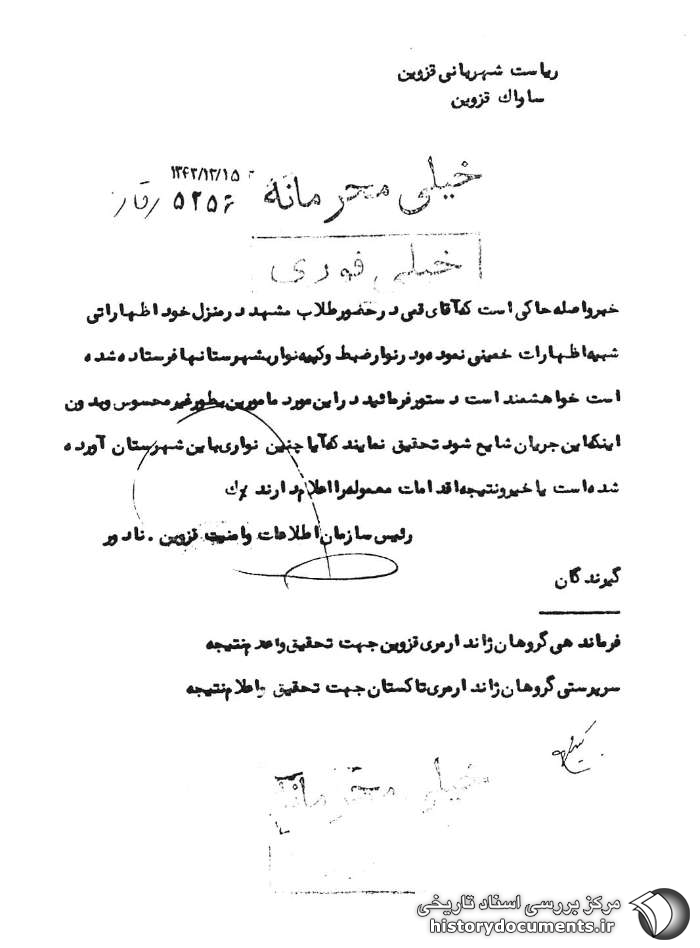 ریاست شهربانی قزوین
ساواك قزوین
۱۳۴۲/۱۲/۱۵
خیلی محرمانه
۵۲۵۶
خیلی فوری
خبرواصله حاکی است که آقای قمی در حضور طلاب مشهد در منزل خود اظهاراتی
شبیه اظهارات خمینی نموده و در نوار ضبط وکپیه نوار بشهرستانها فرستاده شده
است خواهشمند است دستور فرمائید در این مورد مامورین بطور غیر محسوس وبدون
اینکه این جریان شایع شود تحقیق نمایند که آیا چنین نواری باین شهرستان آورده
شده است یا خیر و نتیجه اقدامات معموله را اعلام دارند
رئیس سازمان اطلاعات وامنیت قزوین . نادور
گیرندگان
فرماندهی گروهان ژاندارمری قزوین جهت تحقیق واعلام نتیجه
سرپرستی گروهان ژاندارمری تاکستان جهت تحقیق واعلام نتیجه
خیلی محرمانه
مرکز بررسی اسناد تاریخی
historydocuments.ir